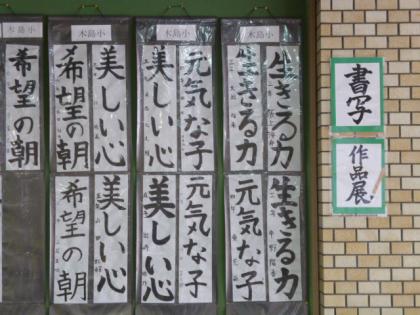 木島小
木島小
木島小
木島小
生きる力
生きる力
元気な子
美しい心
美しい心
希望の朝
希望の朝
生きる力
元気な子
元気な子
美しい心
美しい心
希望の朝
書写
作品展